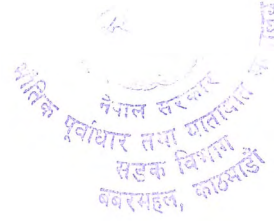 नेपाल सरकार
भौतिक पूर्वाधार तथा यातायात
सडक विभाग
बबरमहल, काठमाडौं